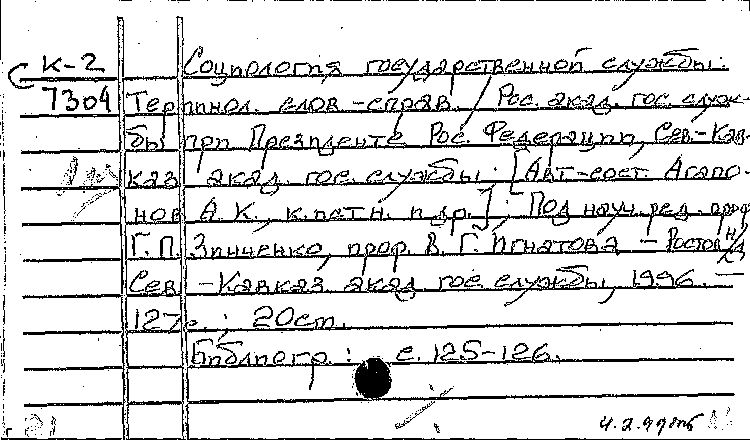 К-2 Социология государственной службы:
7304 Терминол. слов.-справ. / Рос. акад. гос. служ-
бы при Президенте Рос. Федерации, Сев.-Кав-
каз. акад. гос. службы. [Авт.-сост. Агапо-
нов А.К., к.пст.н. и др.]; Под науч. ред. проф.
Г.П. Зинченко, проф. В.Г. Игнатова – Ростов н/Д
Сев.-Кавказ. акад. гос. службы, 1996. –
127с.; 20см.
Библиогр.: с. 125-126.
4.2.97